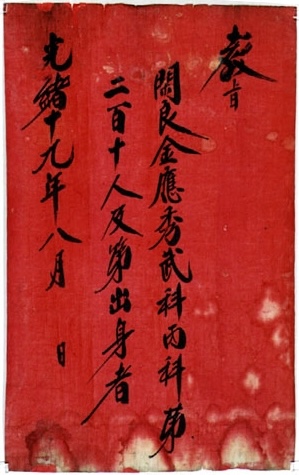 教旨
閑良金應秀武科丙科第
二百十人及第出身者
光緖十九年八月 日